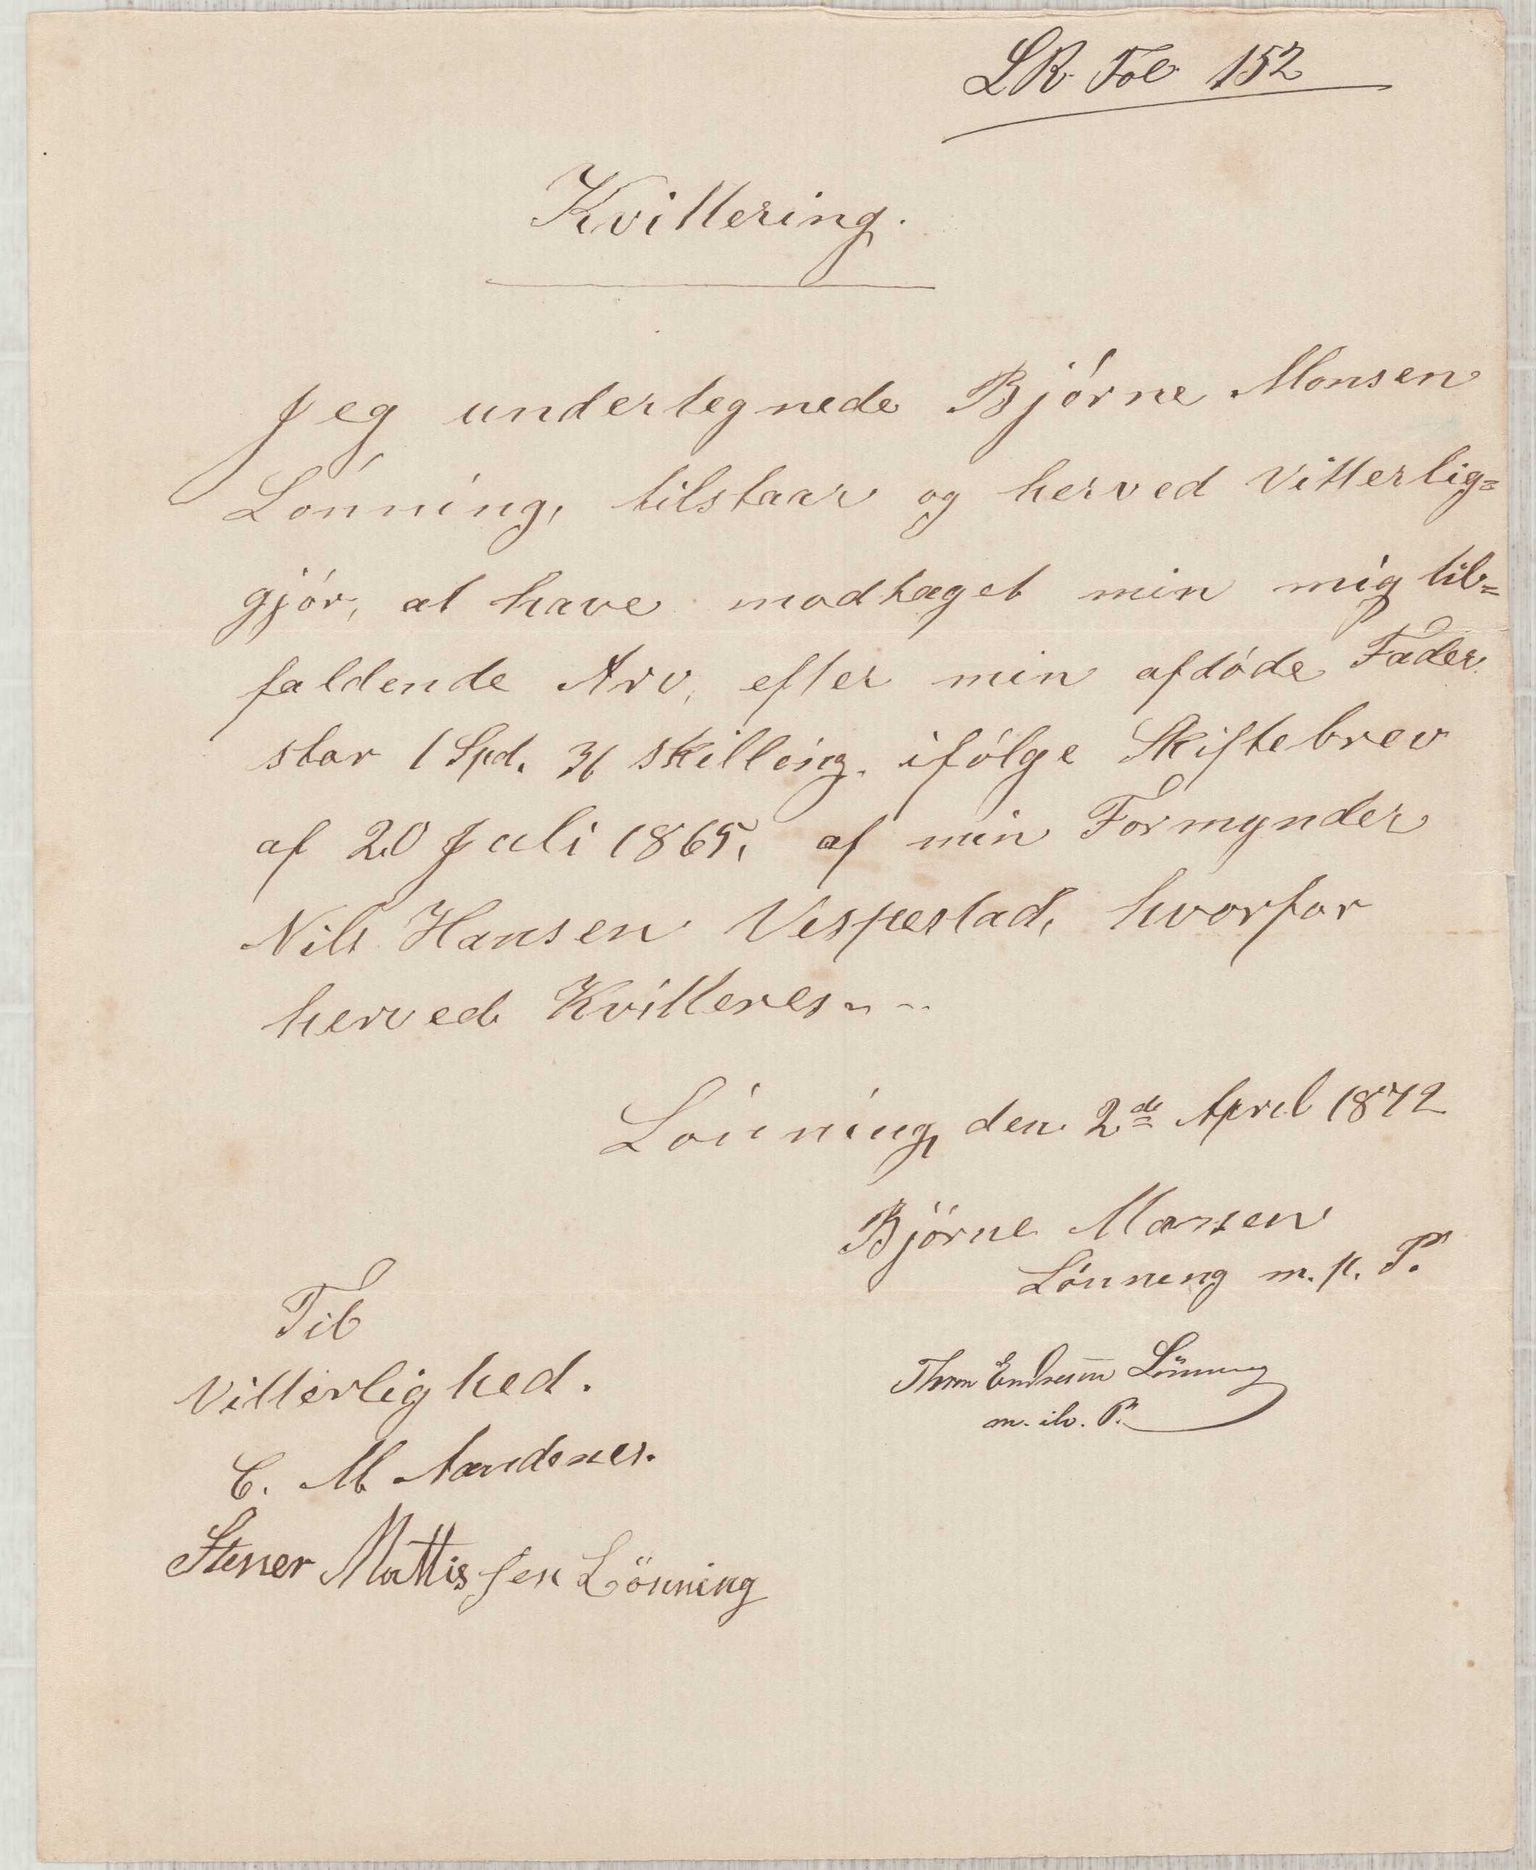 LR Fol 152
Kvittering.
Jeg undertegnede Bjórne Monsen
Lónning, tilstaar og herved Vitterlig=
gjór, at have modtaget min mig til=
faldende Arv, efter min afdóde Fader
stor 1 Spd. 36 skilling. ifólge Skiftebrev
af 20 Juli 1865, af min Formynder
Nils Hansen Vespestad, hvorfor
herved Kvitteres
Lónning den 2de April 1872
Björne Monsen
Lónning m. p. P.
Til
Vitterlighed.
Endresen Lönning
m. ih. P.
C. M.
Stener Mattissen Lönning